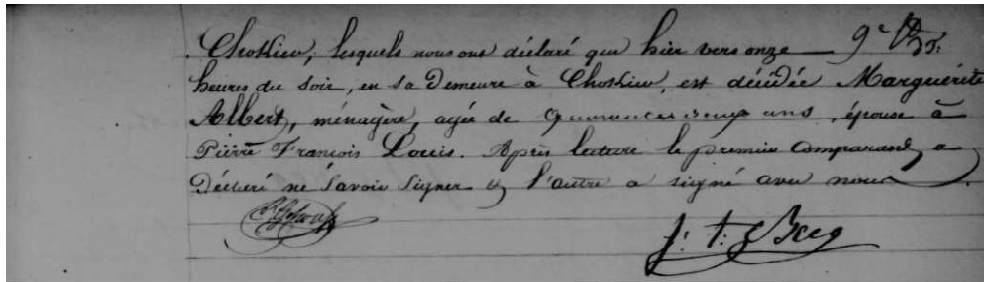 Chokier, lesquels nous ont déclaré que hier vers onze
heures du soir, en sa demeure à Chokier, est décédée Marguérite
Albert, ménagère, agée de ans, épouse à
Pierre François Louis. Après lecture le premier Comparant a
Déclaré ne savoir signer et l'autre a signé avec nous.